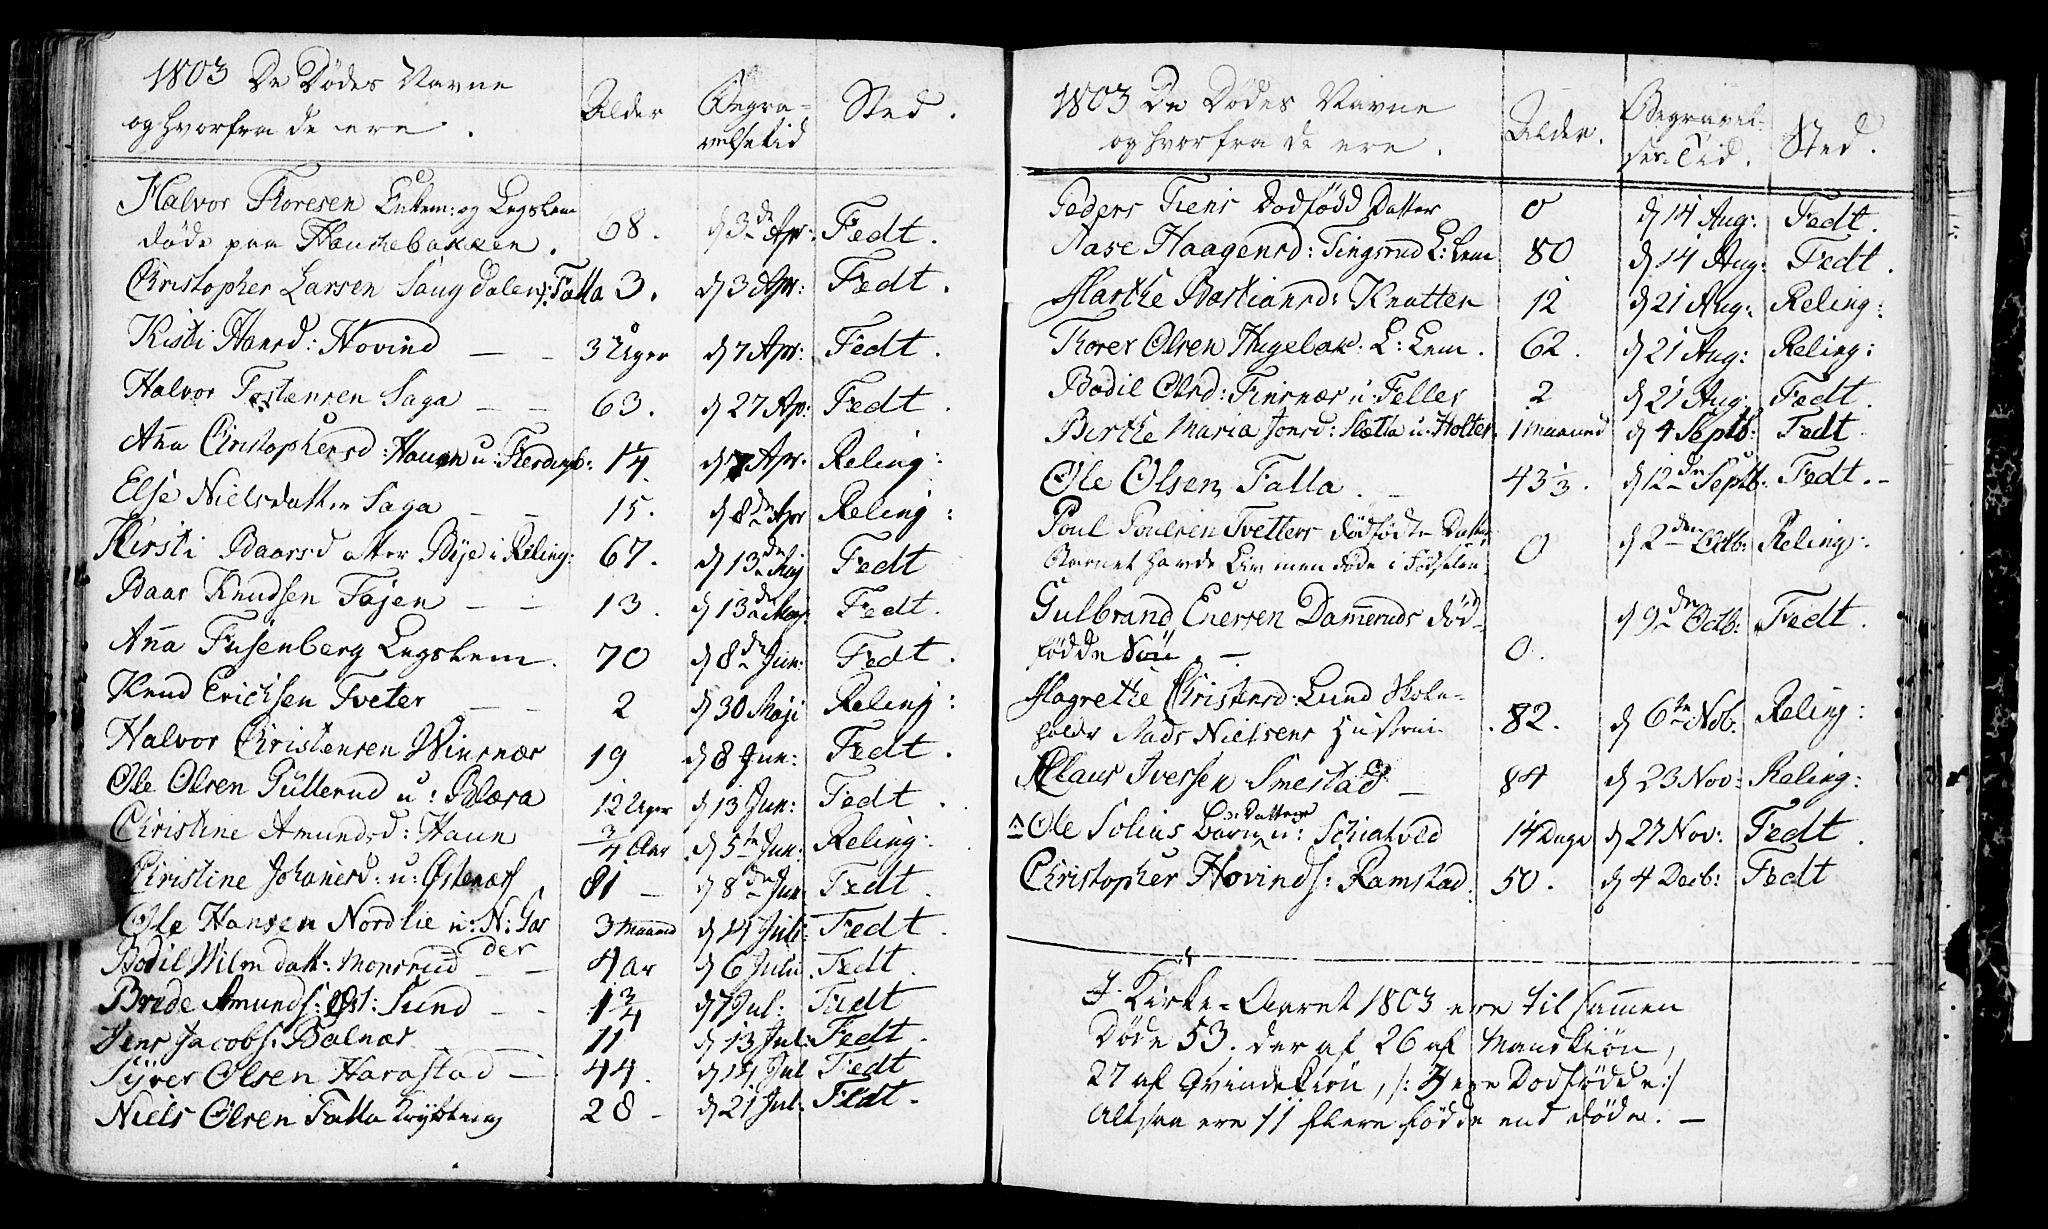 1803 De Dødes Navne
og hvorfra de ere.
Alder
Begra-
velsetid
Sted.
Halvor Thoresen Enkem: og Legslem
døde paa Hauchebakken. 68. d 3de Apr: Fedt.
Christopher Larsen Saugdalen /: Falla 3. d 3 Apr: Fedt.
Kisti Hansd: Hovind — — 3 Uger d 7 Apr: Fedt.
Halvor Tostensen Saga — — 63. d 27 Ap: Fedt.
Aña Christophersd: Haugn u: 14. d 7 Apr. Reling:
Else Nielsdatter Saga — — 15. d 8de Apr Reling:
Kirsti Baarsdatter Bye i Reling: 67. d 13de Maj Fedt
Baar Knudsen Tøjen — — 13. d 13de Maj: Fedt.
Aña Fusenberg Legslem. 70 d 8de Jun: Fedt.
Knud Erichsen Tveter — — 2 d 30 Maji Reling:
Halvor Christensen Winsnær 19 d 8 Jun: Fedt.
Ole Olsen Gullerud u: Blæra 12 Uger d 13 Jun: Fedt.
Christine Amundsd: Haun 3/4 Aar d 5te Jun: Reling:
Christine Johañesd: u: Østenæss 81 — d 8de Jun Fedt.
Ole Hansen Nordlie u: N: Gar
der 3 Maaned d 14 Juli: Fedt.
Bodil Wilm datt: Monsrud — — 4 Ar d 6 Julii. Fedt.
Brede Amunds: Øst: Sund — - 1 3/4 d 7 Jul: Fedt
Jens Jacobs: Balnær 11 d 13 Jul: Fedt.
Syver Olsen Harastad — 44. d 14 Jul Fedt
Niels Olsen Falla 28 — d 21 Jul: Fedt.
1803 De Dødes Navne
og hvorfra de ere.
Alder.
Begravel-
ses-Tid.
Sted.
Peders Tiens Dødfødd Datter 0 d 14 Aug: Fedt.
Aase Haagensd: Tingsrud L: Lem 80 d 14 Aug: Fedt.
Marthe Bastiansd: Knatten 12 d 21 Aug: Reling:
Thorer Olsen Hugelak L: Lem. 62. d 21 Aug: Reling:
Bodil Olsd: Finsnær u: Feller 2 d 21 Aug: Fedt.
Birthe Maria Jonsd: Slætta u: Holter. 1 Maaned d 4 Septb: Fedt.
Ole Olsen Falla. — 43 1/3. d 12te Septb: Fedt.-
Poul Poulsen Tvetters dødfødte Datter,
Barnet havde Liv men døde i Fødselen. 0 d 2den Octb: Reling:
Gulbrand Enersen Dam̃eruds død-
fødde Søn. — 0. d 9den Octb: Fedt.
Magrethe Christensd: Lund Skole-
holder Mads Nielsens Hustrue .82. d 6te Nob: Reling:
Claus Iversen Smestad — 84 d 23 Nov: Reling:
Ole Solius Barn Datter u: Schiatved 14 Dage d 27 Nov: Fedt.
Christopher Hovinds: Ramstad. 50. d 4 Decb: Fedt
I Kirke-Aaret 1803 ere til sam̃en
Døde 53. der af 26 af Mandkiøn,
27 af Qvindekiøn, /: 3 ere Dødfødde :/
Altsaa ere 11 flere fødde end døde. —